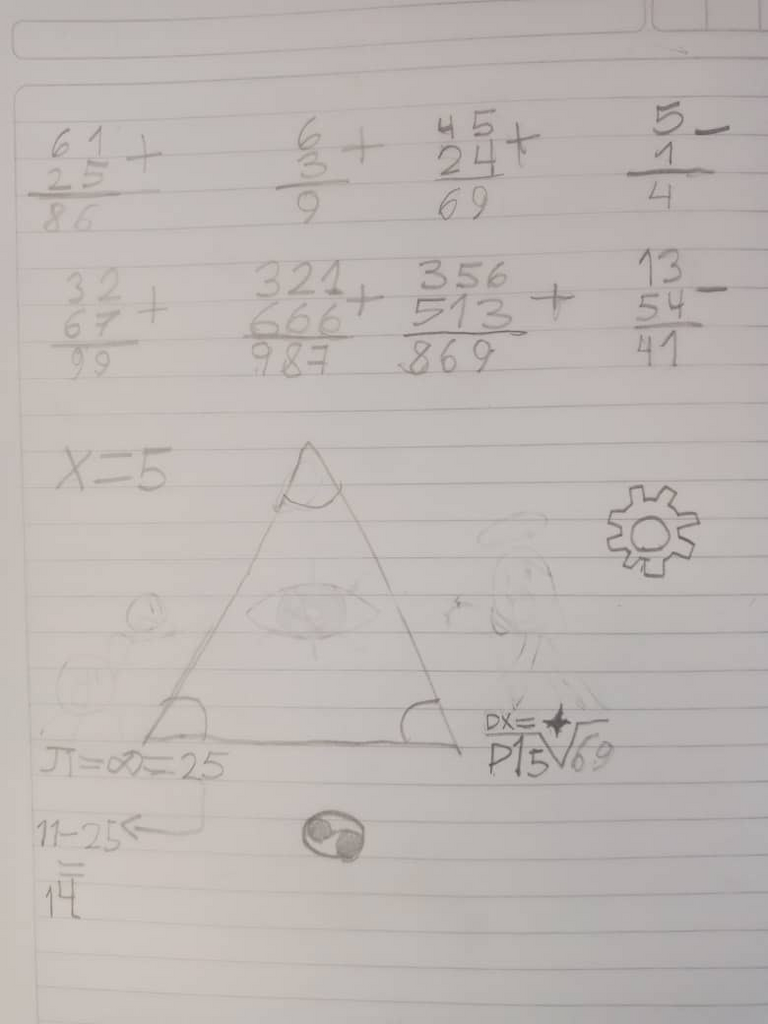 61 + 6 + 45 + 5 -
25 3 24 1
86 9 69 4
32 + 321 + 356 + 13 -
67 666 513 54
99 987 869 41
X=5
DX=
π=∞=25
P15√69
11-25
=
14